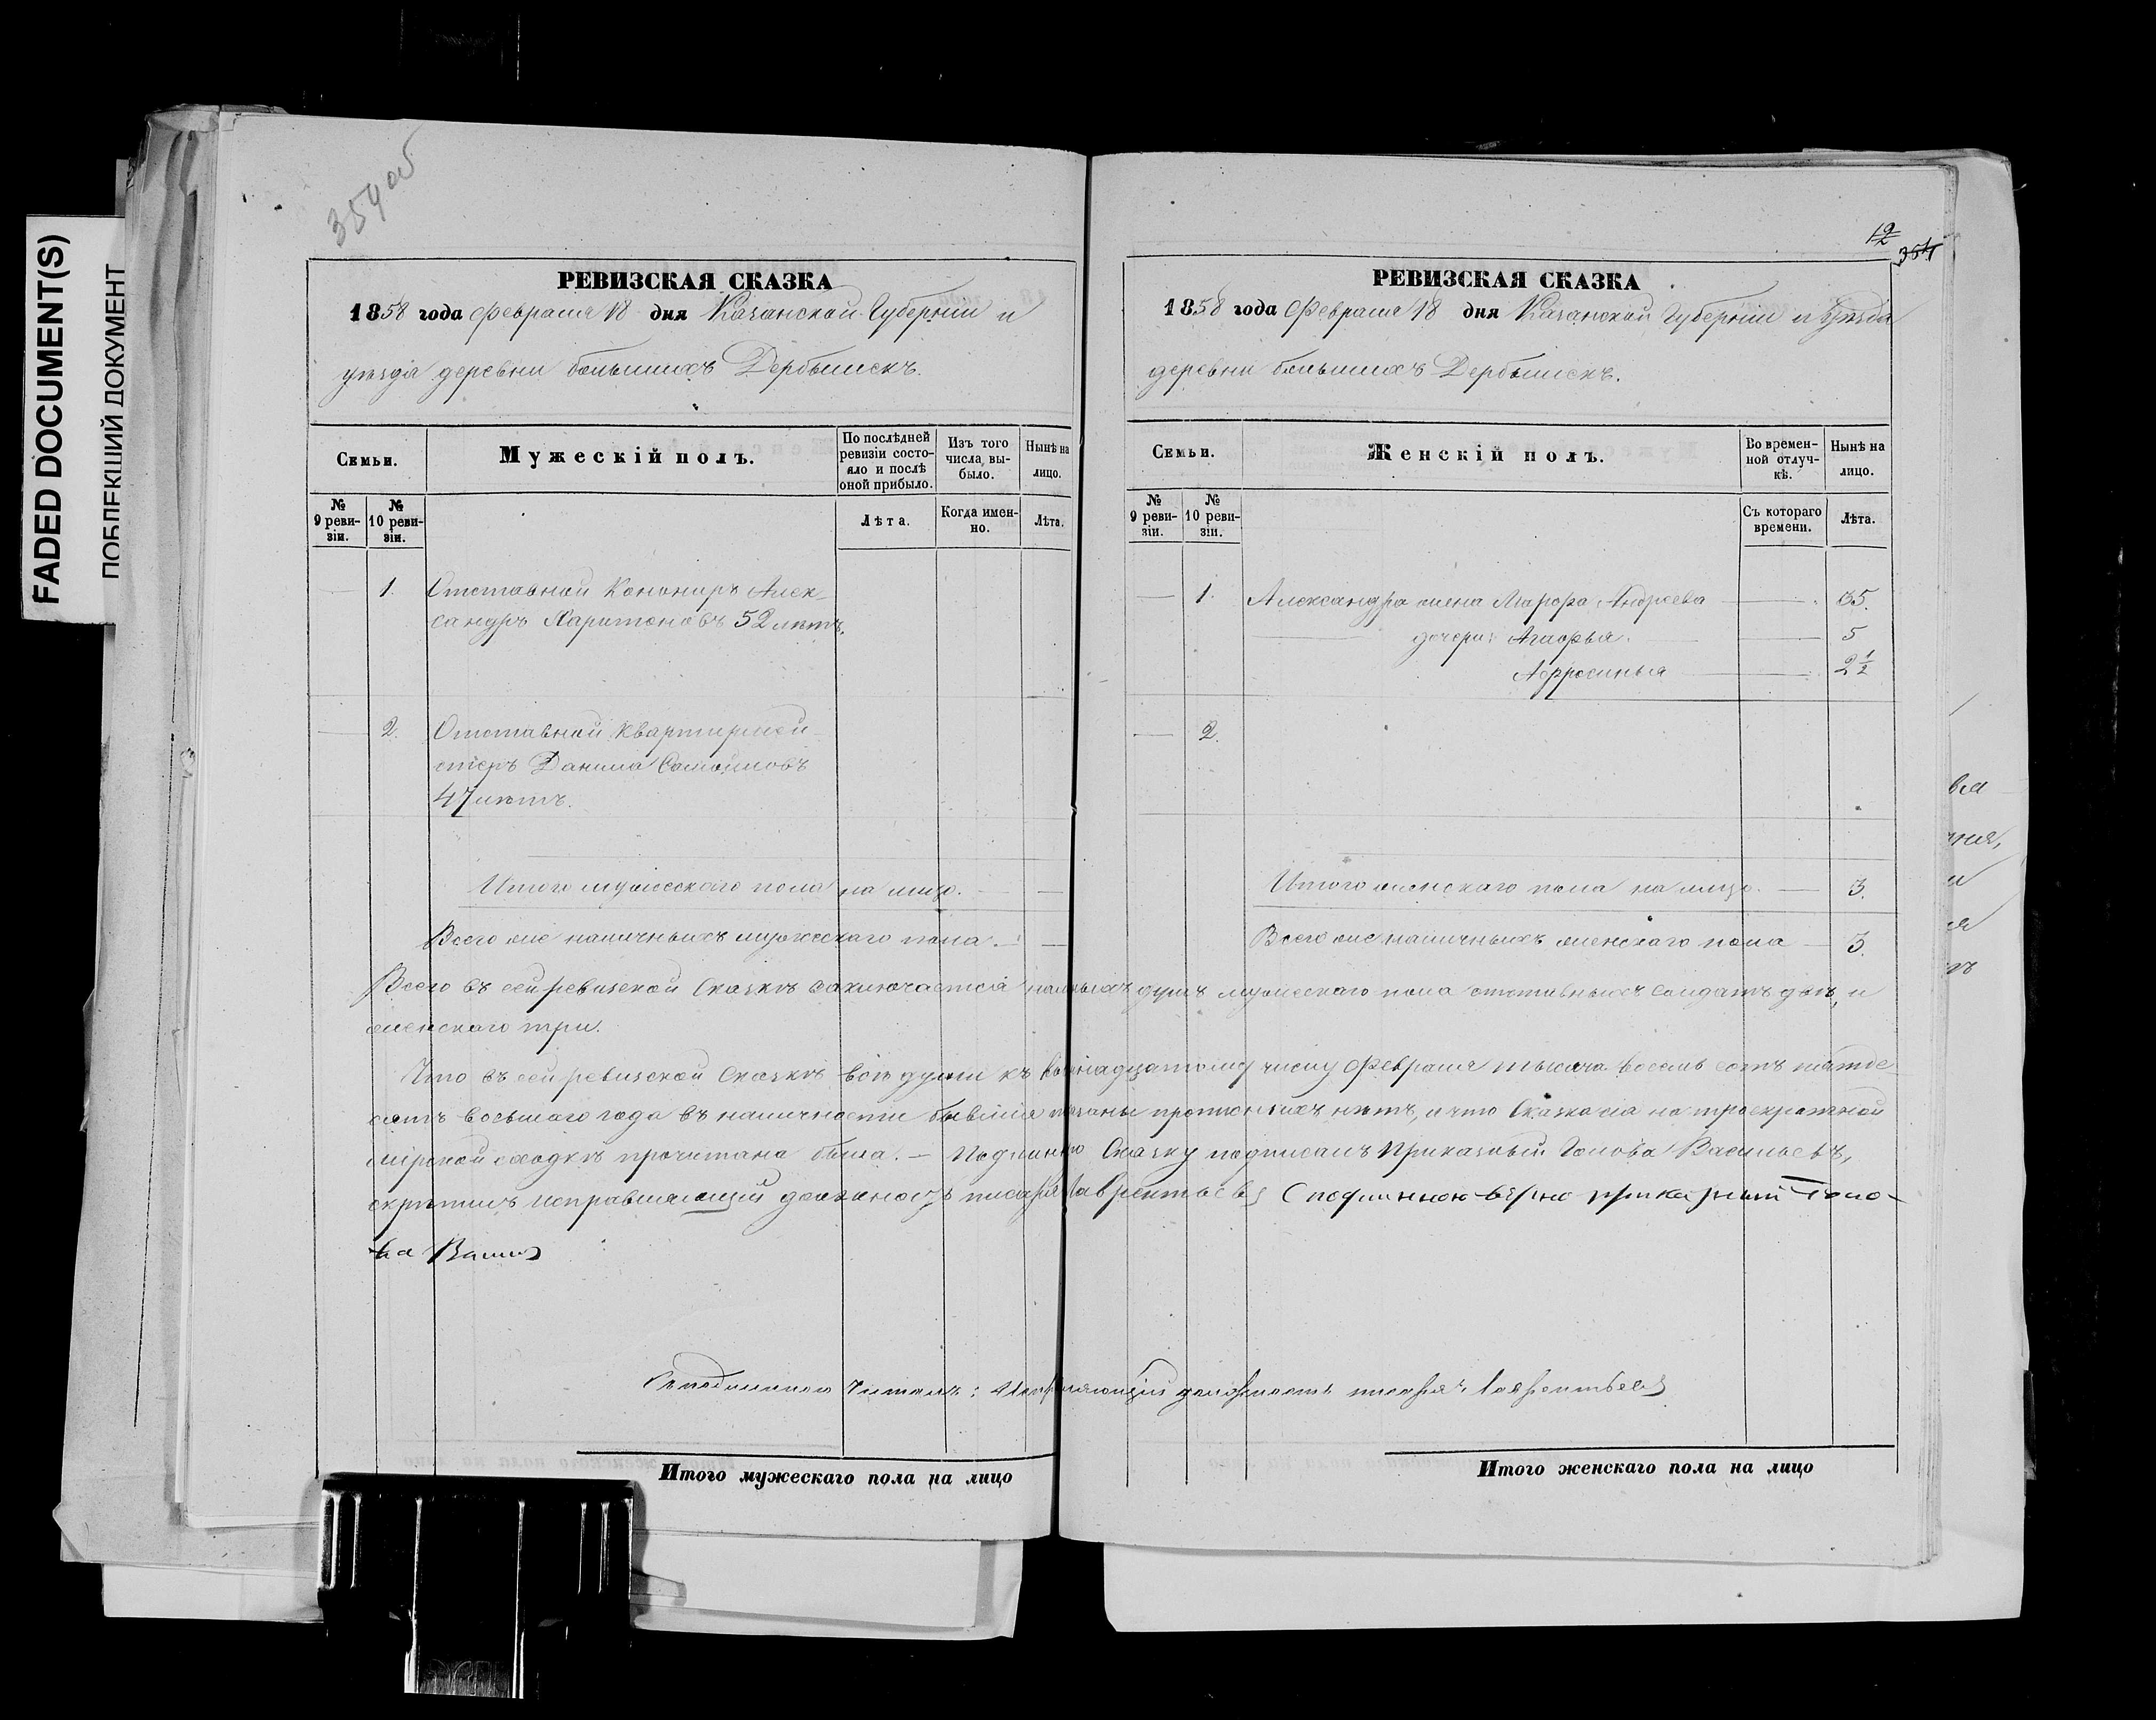 FADED DOCUMENT(S)
ПОБЛЕКШИЙ ДОКУМЕНТ
354 об
РЕВИЗСКАЯ СКАЗКА
1858 года Февраля 18 дня Казанской Губерніи и
уѣзда деревни большихъ Дербышекъ.
Семьи.
Мужескій полъ.
По послѣдней ревизіи состояло и послѣ оной прибыло.
Изъ того числа, выбыло.
Нынѣ на лицо.
№ 9 ревизіи.
№ 10 ревизіи.
Лѣта.
Когда именно.
Лѣта.
1. Отставной Канониръ Алек-
сандръ Харитоновъ 52 лѣтъ.
2. Отставной квартирмей-
стеръ Данила Самойловъ
47 лѣтъ.
Итого мужескаго пола на лицо. —
Всего же наличныхъ мужескаго пола. —
12
354
РЕВИЗСКАЯ СКАЗКА
1858 года Февраля 18 дня Казанской Губерніи и Уѣзда
деревни большихъ Дербышекъ.
Семьи.
Женскій полъ.
Во временной отлучкѣ.
Нынѣ на лицо.
№ 9 ревизіи.
№ 10 ревизіи.
Съ котораго времени.
Лѣта.
1. Александра жена Марфа Андреева — 35.
дочери: Агафья. — 5
Афросинья — 2 1/2
2.
Итого женскаго пола на лицо. — 3.
Всего же наличныхъ женскаго пола — 3.
Всего въ сей ревизской Сказкѣ заключается наличныхъ душъ мужескаго пола отставныхъ солдатъ двѣ, и
женскаго три.
Что въ сей ревизской Сказкѣ всѣ души къ восемнадцатому числу Февраля тысяча восемь сотъ пятьде-
сятъ восьмаго года въ наличности бывшія показаны прописныхъ нѣтъ, и что Сказка сія на троекратной
мірской сходкѣ прочитана была. — Подлинную Сказку подписалъ Приказный Голова Васильевъ,
скрѣпилъ исправляющій должность писаря Лаврентьевъ С подлинною вѣрно приказный Голо-
ва
С подлинною читалъ: Исправляющій должность писаря Лаврентьевъ
Итого мужескаго пола на лицо
Итого женскаго пола на лицо